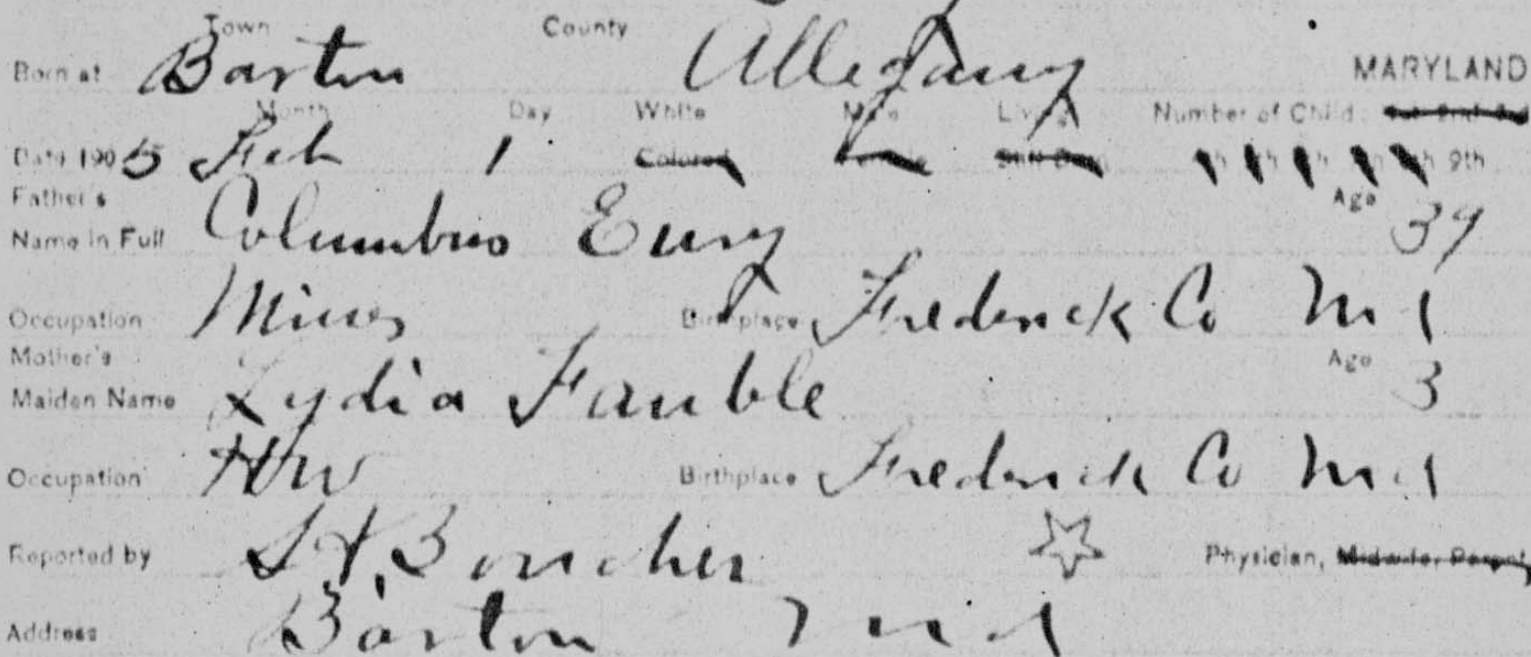 Town County
Born at Barton Allegany MARYLAND
Month Day White Male Living Number of Child: 1st 2nd 3d
Date 1905 Feb 1 Colored Female Still Born 9th
Father's Age
Name in Full Columbus Eury 39
Occupation Miner Birthplace Frederick Co Md
Mother's Age
Maiden Name Lydia Fauble 3
Occupation HW Birthplace Frederick Co Md
Reported by Boucher Physician, Midwife, Parent
Address Barton Md